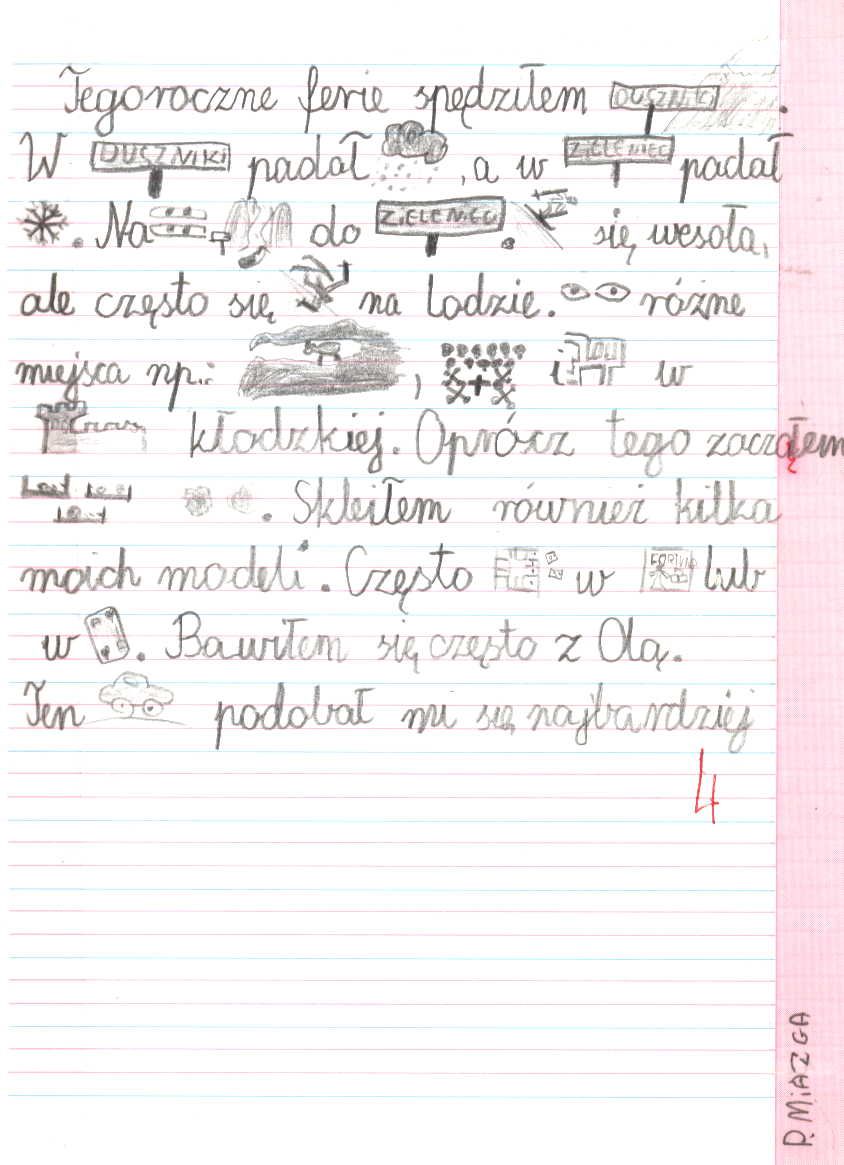 Tegoroczne ferie spędziłem DUSZNIKI .
W DUSZNIKI padał , a w ZIELENIEC padał
. Na do ZIELENIEC . się wesoła,
ale często się na lodzie. różne
miejsca np.: , i w
kłodzkiej. Oprócz tego zaczołem
. Skleiłem również kilka
moich modeli. Często w FORTUNA lub
w . Bawiłem się często z Olą.
Ten podobał mi się najbardziej
4
P. MIAZGA